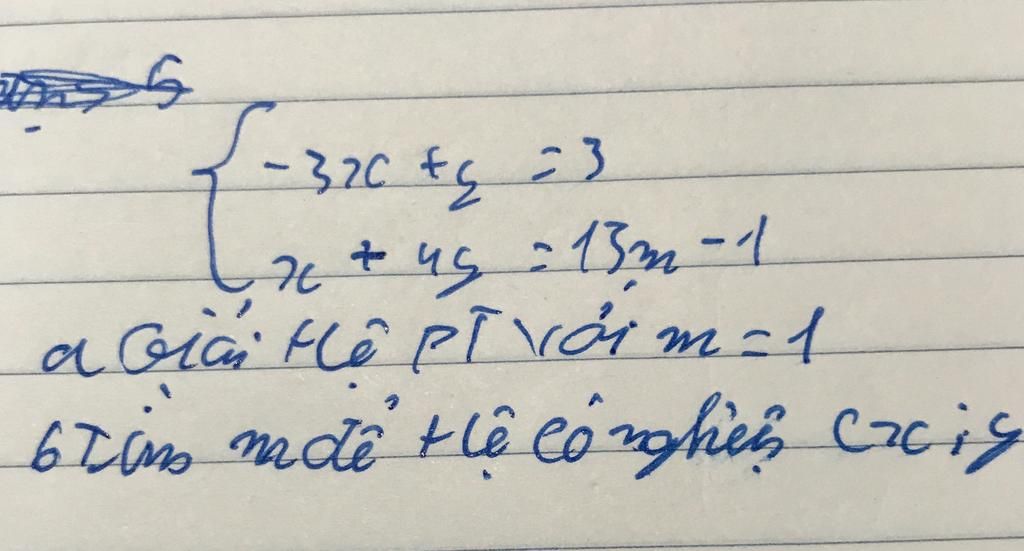 -3x + y = 3
x + 4y = 13m - 1
a Giải Hệ PT với m = 1
b Tìm m để Hệ có nghiệm (x ; y